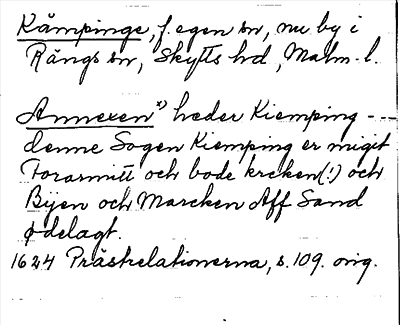 Kämpinge, f. egen sn, nu by i
Rängs sn, Skytts hd, Malm. l.
Annexen x) heder Kiemping ---
denne Sogen Kiemping er migit
Forarmitt och bode krcken(!) och
Bijen och Marcken Aff Sand
ødelagt.
1624 Prästrelationerna, s. 109. orig.